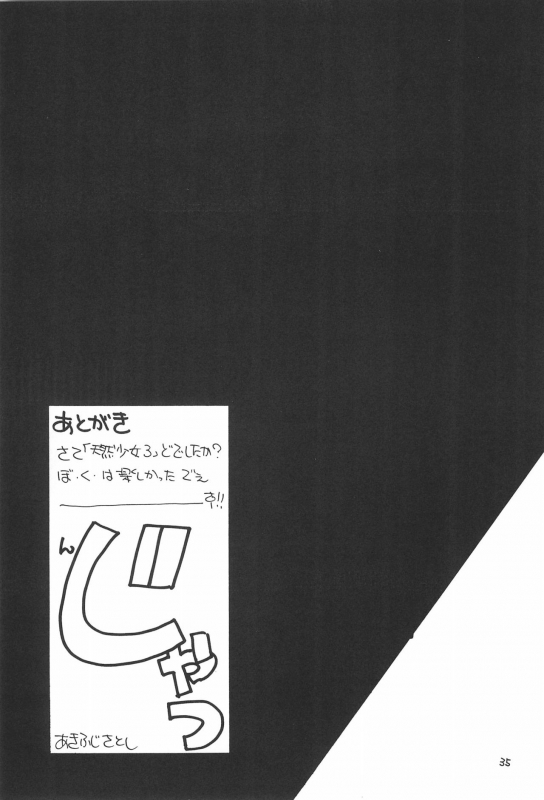 あとがき
さて「天然少女3」どでしたか?
ぼ・く・は楽しかったでぇ
――――――す!!
んじゃっ
あきふじさとし
35